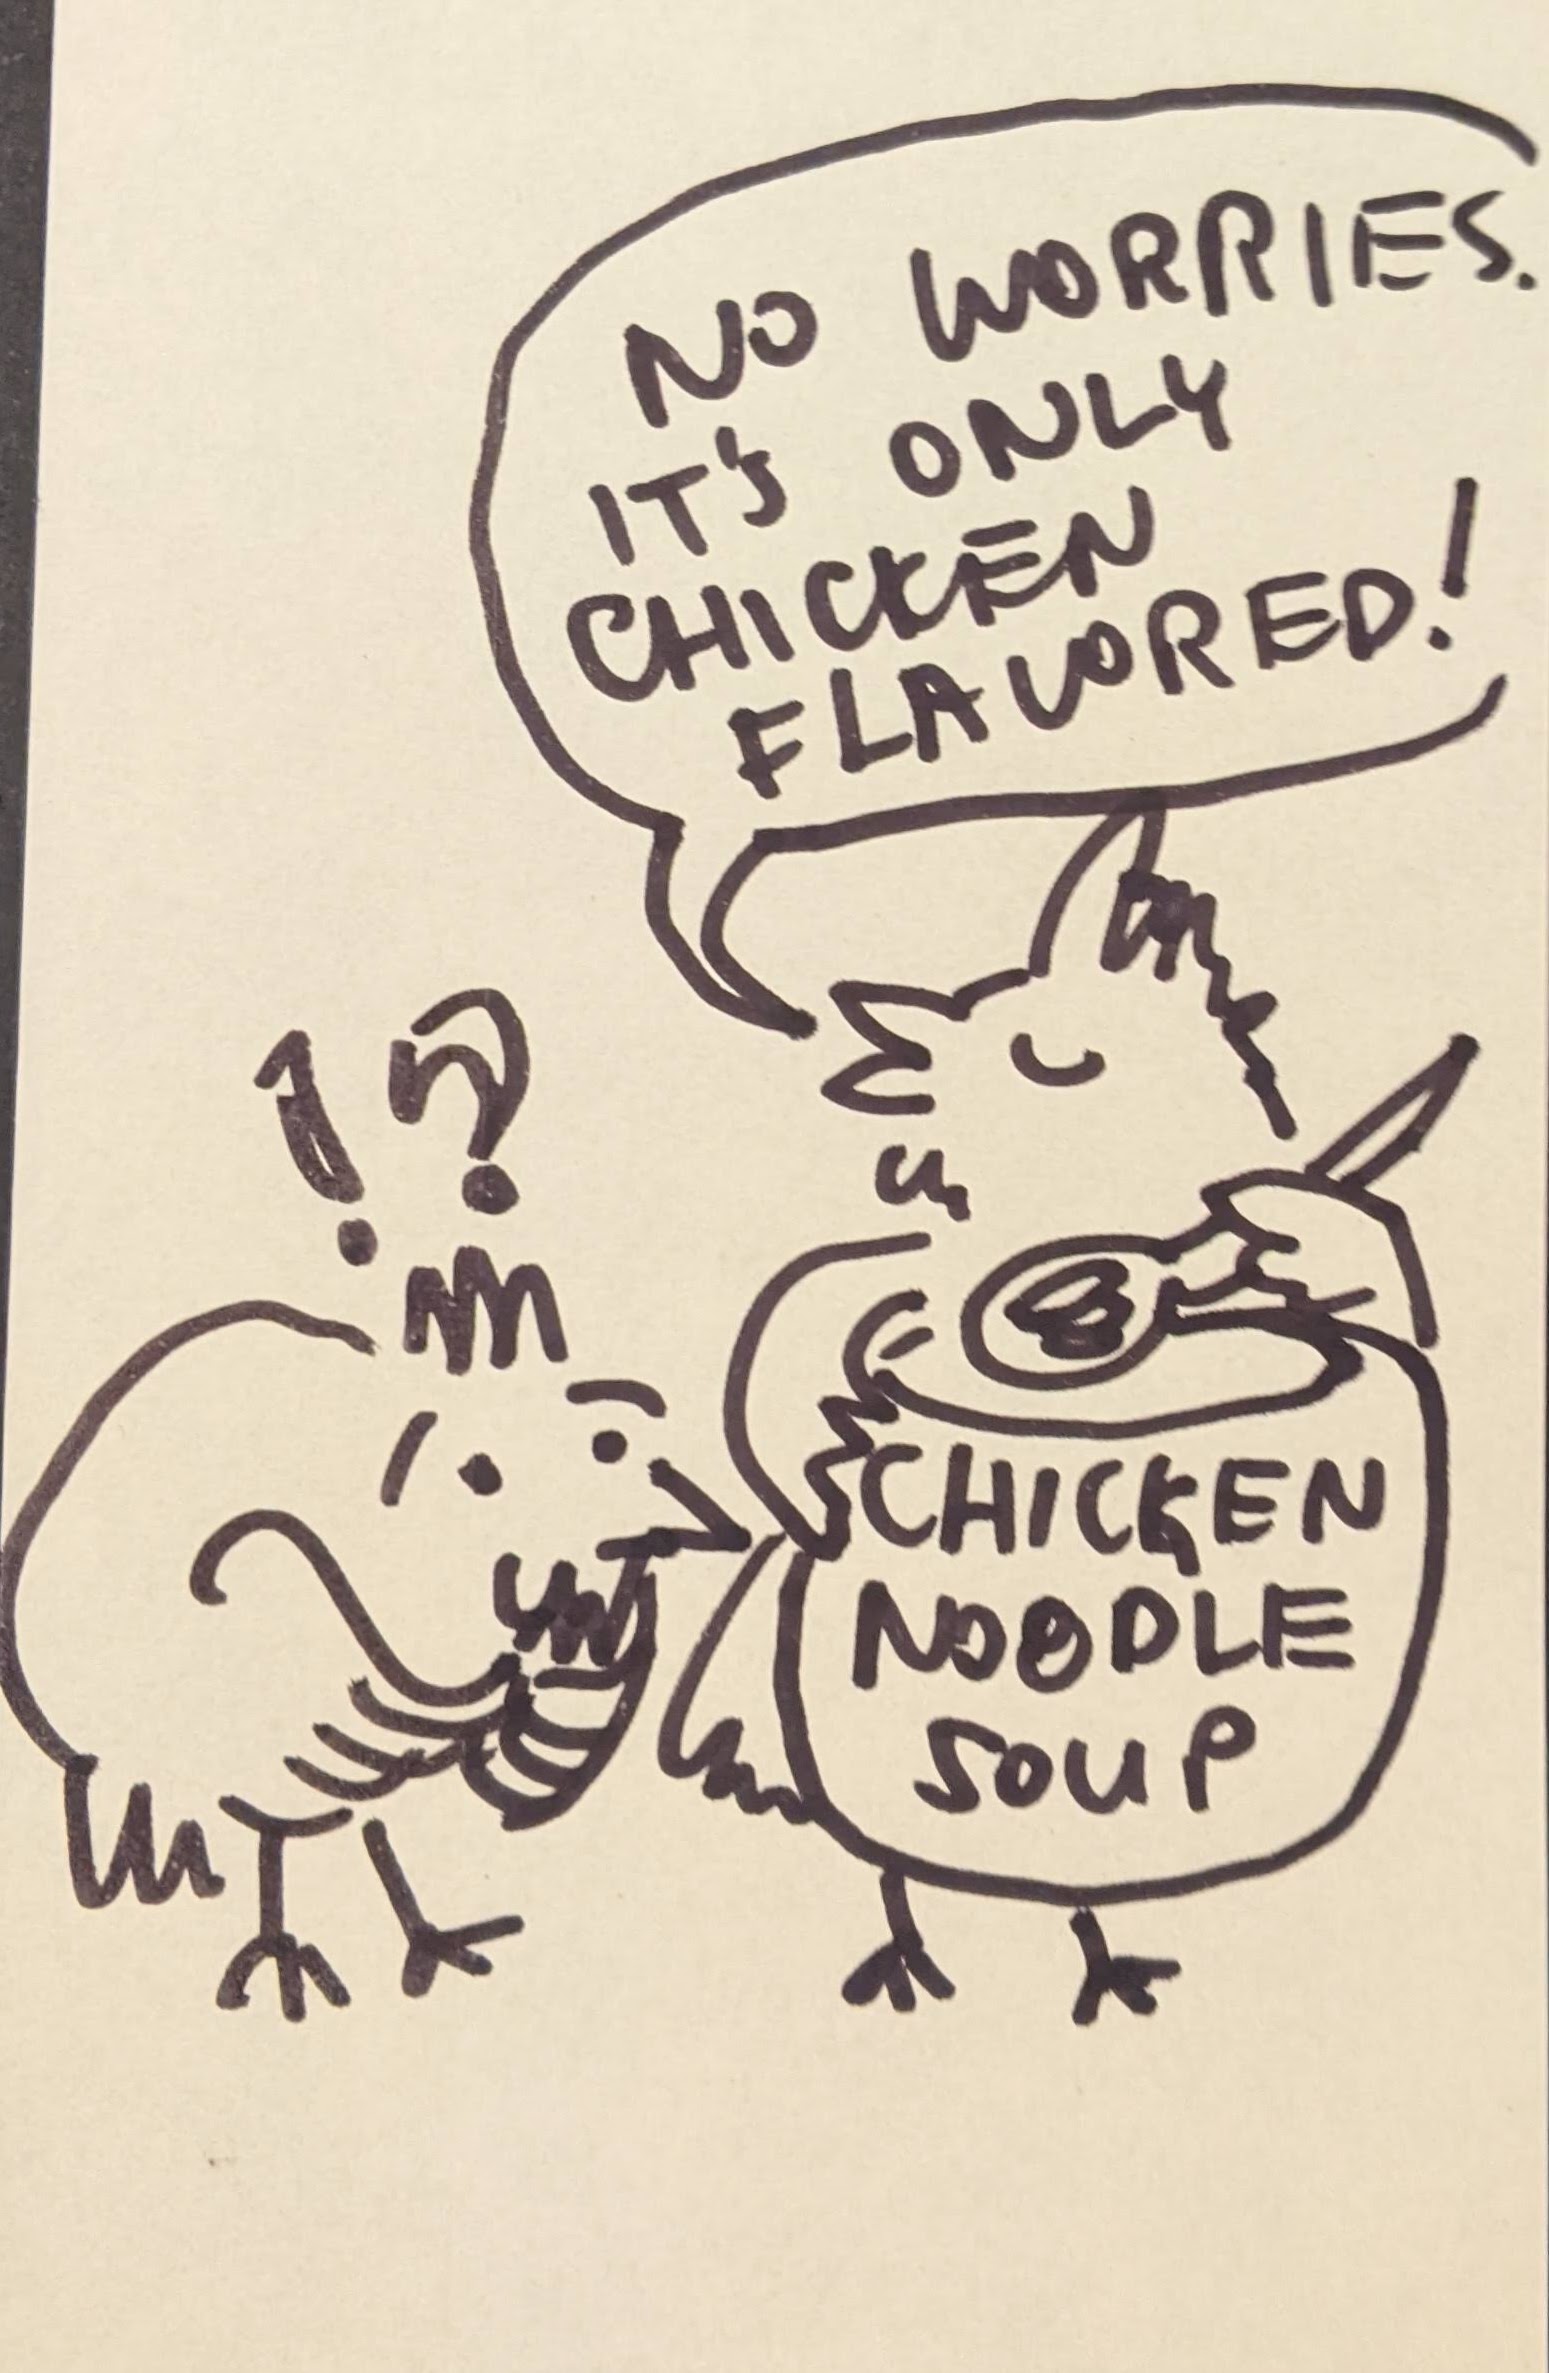 NO WORRIES.
IT'S ONLY
CHICKEN
FLAVORED!
! ?
CHICKEN
NOODLE
SOUP